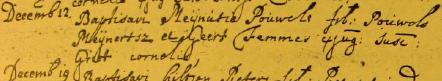 Decemb 12 Baptisavi Meynutie Pouwels fil: Pouwels
Meÿnertsz et Geert Femmes conjug: Susc:
Giet cornelis
Decemb 19 Baptisavi Pieters fil: